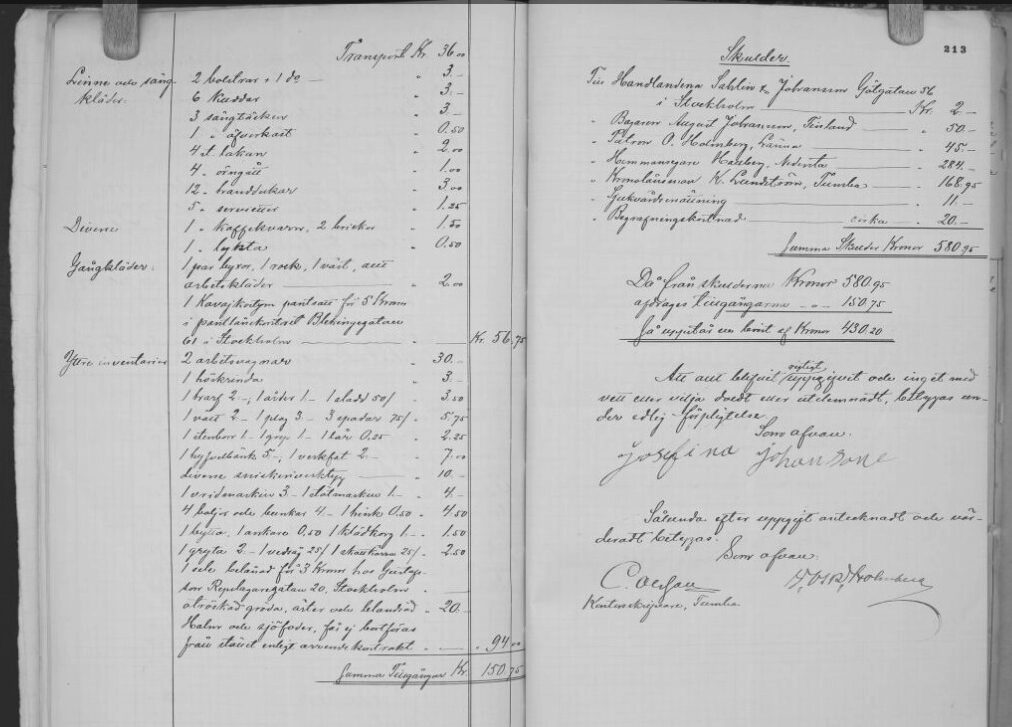 Transport Kr. 36.00
Linne och säng- 2 bolstrar, 1 do — " 3.-
kläder. 6 Kuddar " 3.-
3 sängtäcken " 3.-
1 " öfverkast " 0.50
4 st. lakan " 2.00
4 " örngått " 1.00
12 " handdukar " 3.00
5 " servietter " 1.25
Diverse 1 " kaffekvarn, 2 brickor " 1.50
1 " lykta " 0.50
Gångkläder. 1 par byxor, 1 rock, 1 väst, allt
arbetskläder — " 2.00
1 Kavajkostym pantsatt för 5 Kronor
i pantlånekontoret Blekingegatan
61 i Stockholm — Kr. 56.75
Yttre inventarier 2 arbetsvagnar " 30.-
1 höskrinda " 3.-
1 harf 2-, 1 årder 1- 1 sladd 50/- " 3.50
1 vält 2- 1 plog 3- 3 spadar 75/- " 5.75
1 stenborr 1- 1 grep 1- 1 lår 0.25 " 2.25
1 hyfvelbänk 5-, 1 verkfat 2- " 7.00
diverse snickeriverktyg — " 10.-
1 vridmaskin 3- 1 stötmaskin 1- " 4.-
4 baljor och bunkar 4- 1 hink 0.50 " 4.50
1 byssa, 1 ankare 0.50 1 klädkorg 1- " 1.50
1 gryta 2- 1 vedsåg 25/- 1 skottkärra 25/- " 2.50
1 belånad för 3 Kronor hos Gustafs-
son Repslagaregatan 20, Stockholm "
otröskad gröda, ärter och blandsäd " 20.-
Halm och sjöfoder, får ej bortföras
från stället enligt arrendekontrakt " 94.00
Summa Tillgångar Kr. 150.75
213
Skulder
Till Handlandena Sahlin & Johansson Götgatan 56
i Stockholm — Kr. 2-
" Bagaren August Johansson, Finland " 50.-
" Patron O. Holmberg, " 45.-
" Hemmansegare " 284.-
" Kronolänsman K. Lundström, Tumba " 168.95
" " 11.-
" Begrafningskostnad cirka " 20.-
Summa Skulder Kronor 580.95
Då från skulderna Kronor 580.95
afdrages tillgångarna " " 150.75
Så uppstår en brist af Kronor 430.20
Att allt blifvit riktigt uppgifvit och inget med
vett eller vilja doldt eller utelemnadt, betygas un-
der edlig förpligtelse.
Som ofvan.
Josefina Johansone
Sålunda efter uppgift antecknadt och vär-
deradt betygas.
Som ofvan.
Holmberg
Kontorsskrifvare, Tumba